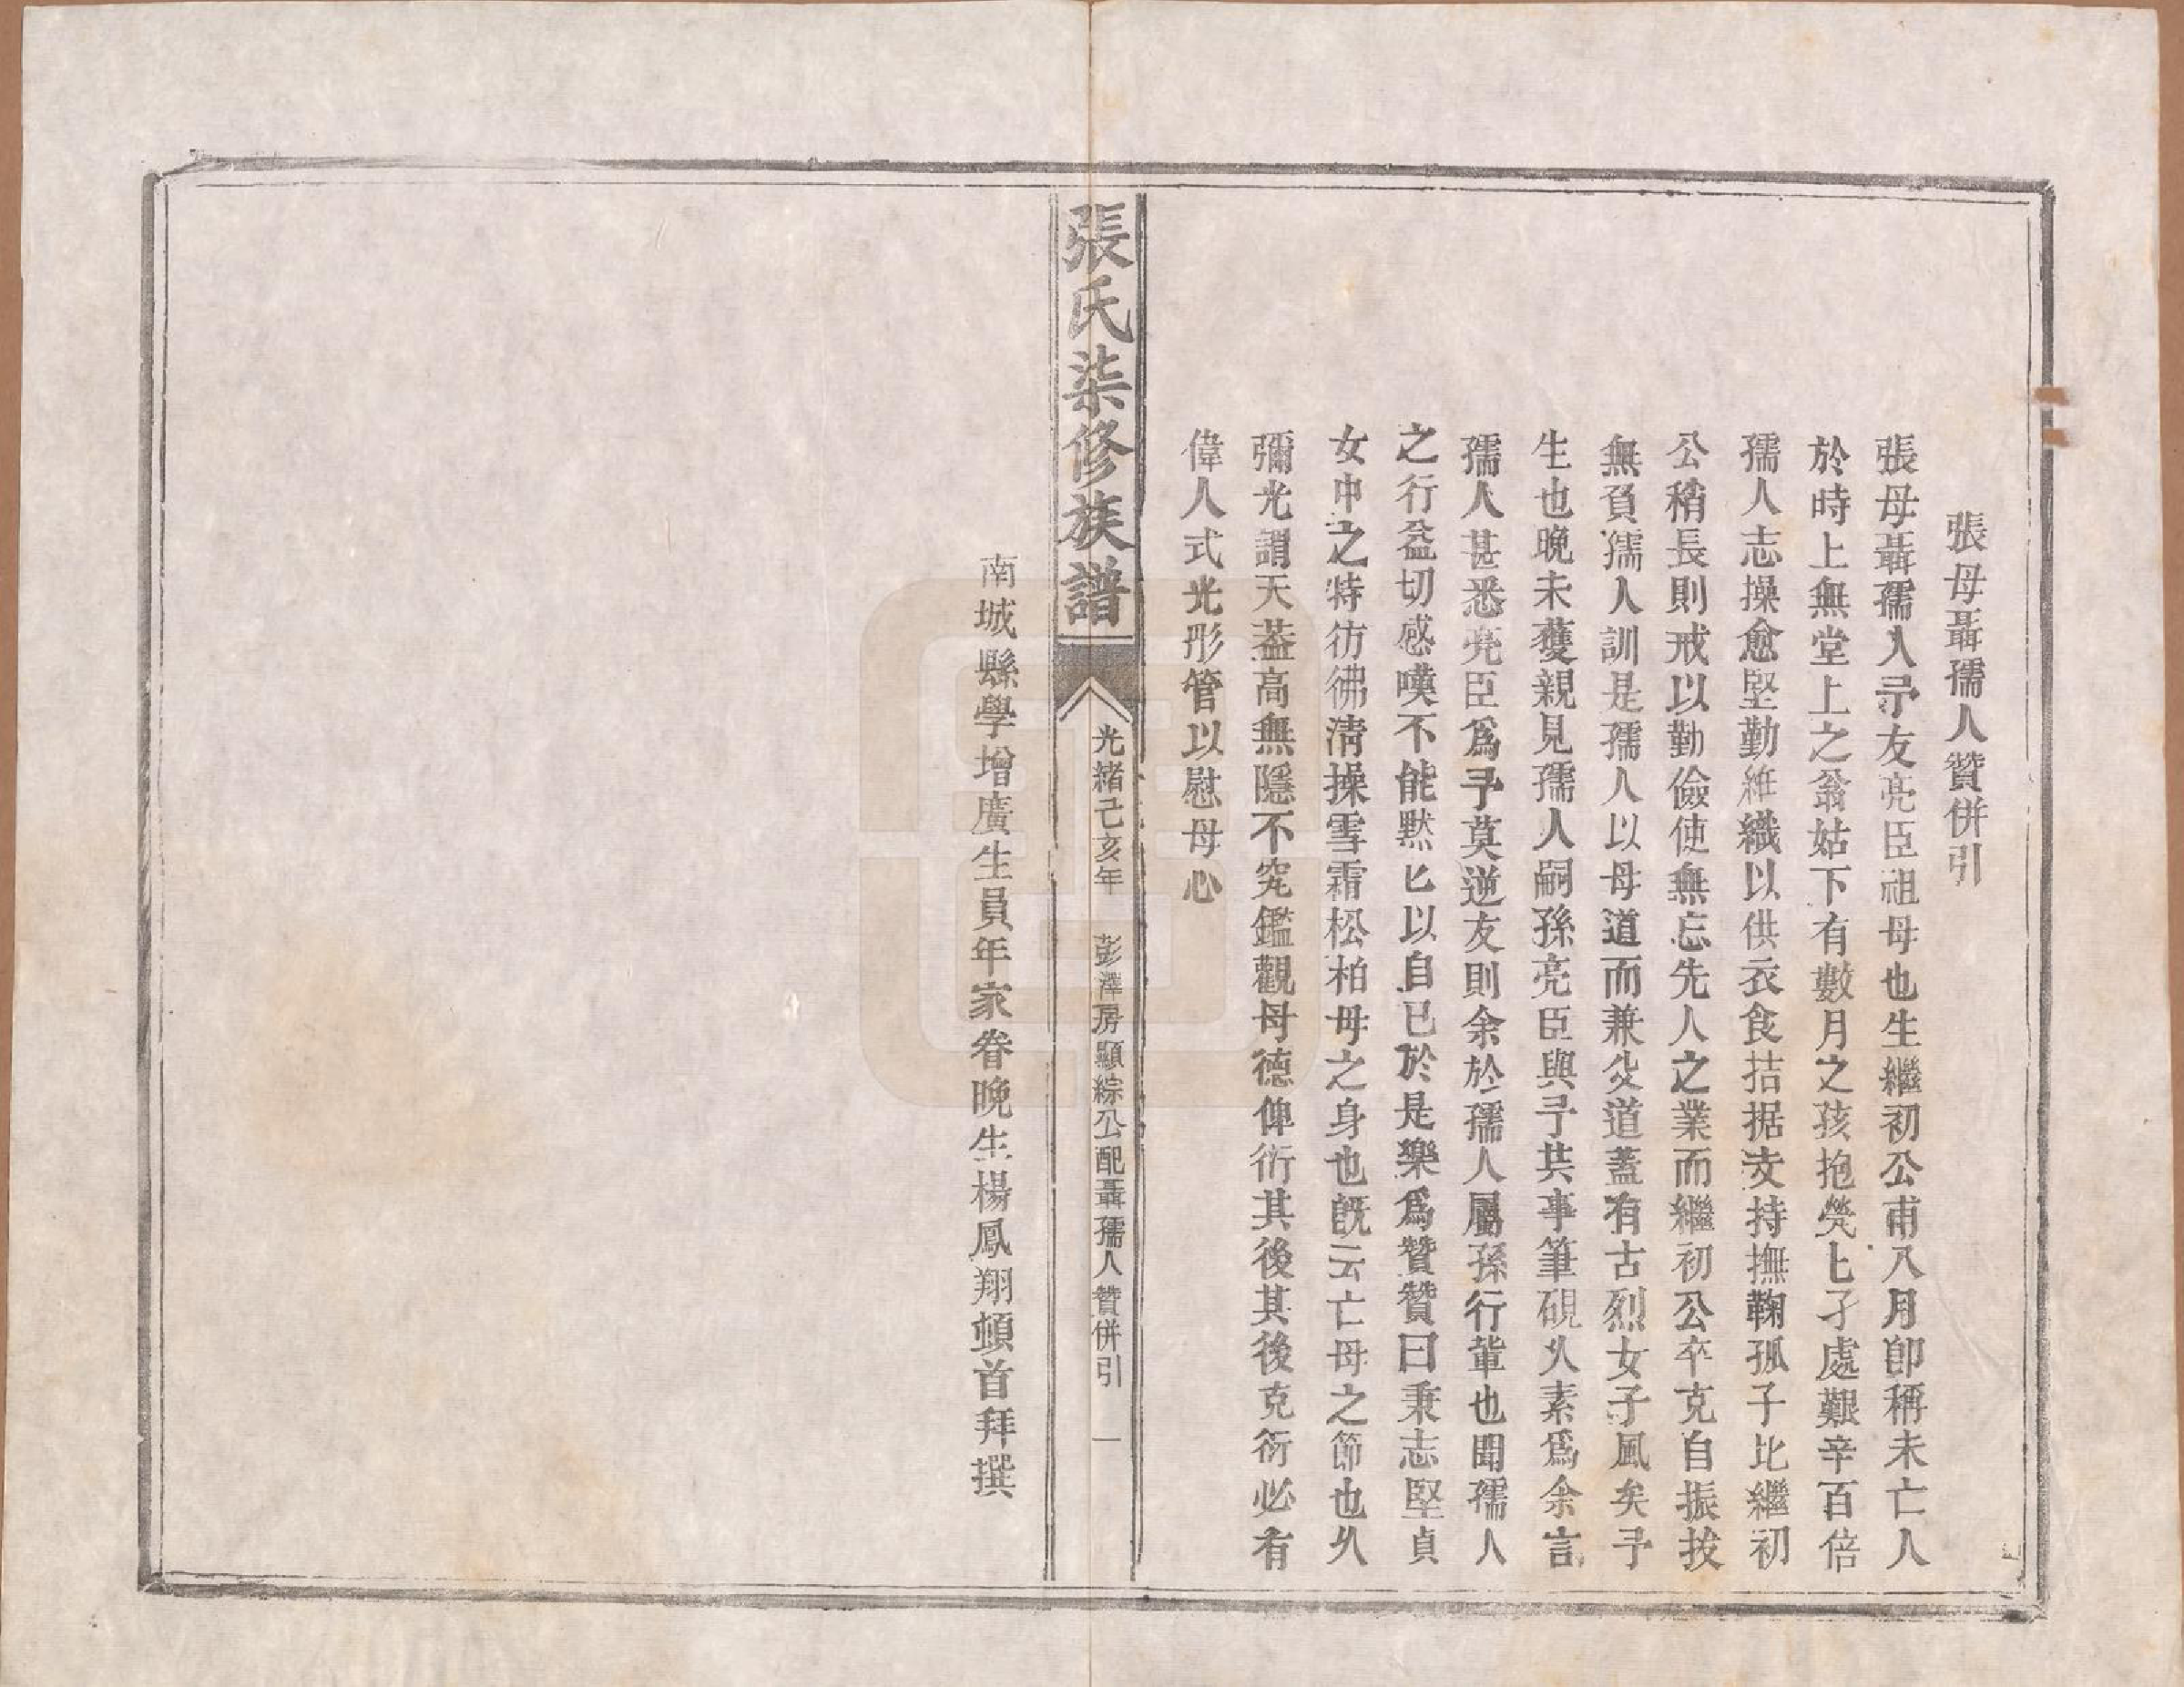 張母聶孺人贊併引
張母聶孺人予友亮臣祖母也生繼初公甫八月卽稱未亡人
於時上無堂上之翁姑下有數月之孩抱煢匕孑處艱辛百倍
孺人志操愈堅勤維織以供衣食拮据支持撫鞠孤子比繼初
公稍長則戒以勤儉使無忘先人之業而繼初公卒克自振拔
無負孺人訓是孺人以母道而兼父道蓋有古烈女子風矣予
生也晚未獲親見孺人嗣孫亮臣與予共事筆硯久素爲余言
孺人甚悉亮臣爲予莫逆友則余於孺人屬孫行輩也聞孺人
之行益切感嘆不能默匕以自已於是樂爲贊贊曰秉志堅貞
女中之特彷彿淸操雪霜松柏母之身也旣云亡母之節也久
彌光謂天葢高無隱不究鑑觀母德俾衍其後其後克衍必有
偉人式光彤管以慰母心
張氏柒修族譜
光緒己亥年 彭澤房顯綜公配聶孺人贊併引 一
南城縣學增廣生員年家眷晚生楊鳳翔頓首拜撰